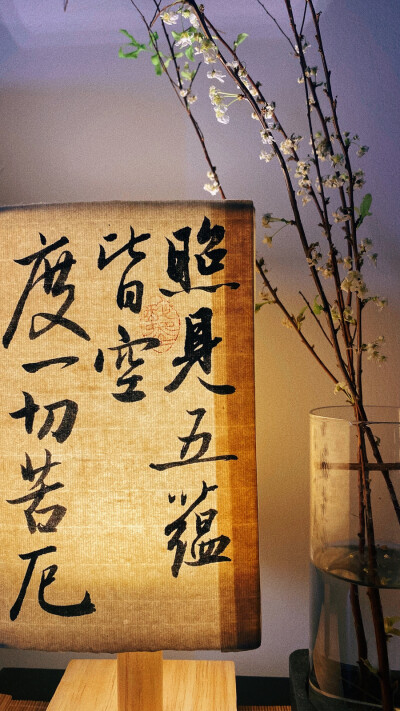 照見五蘊
皆空
度一切苦厄